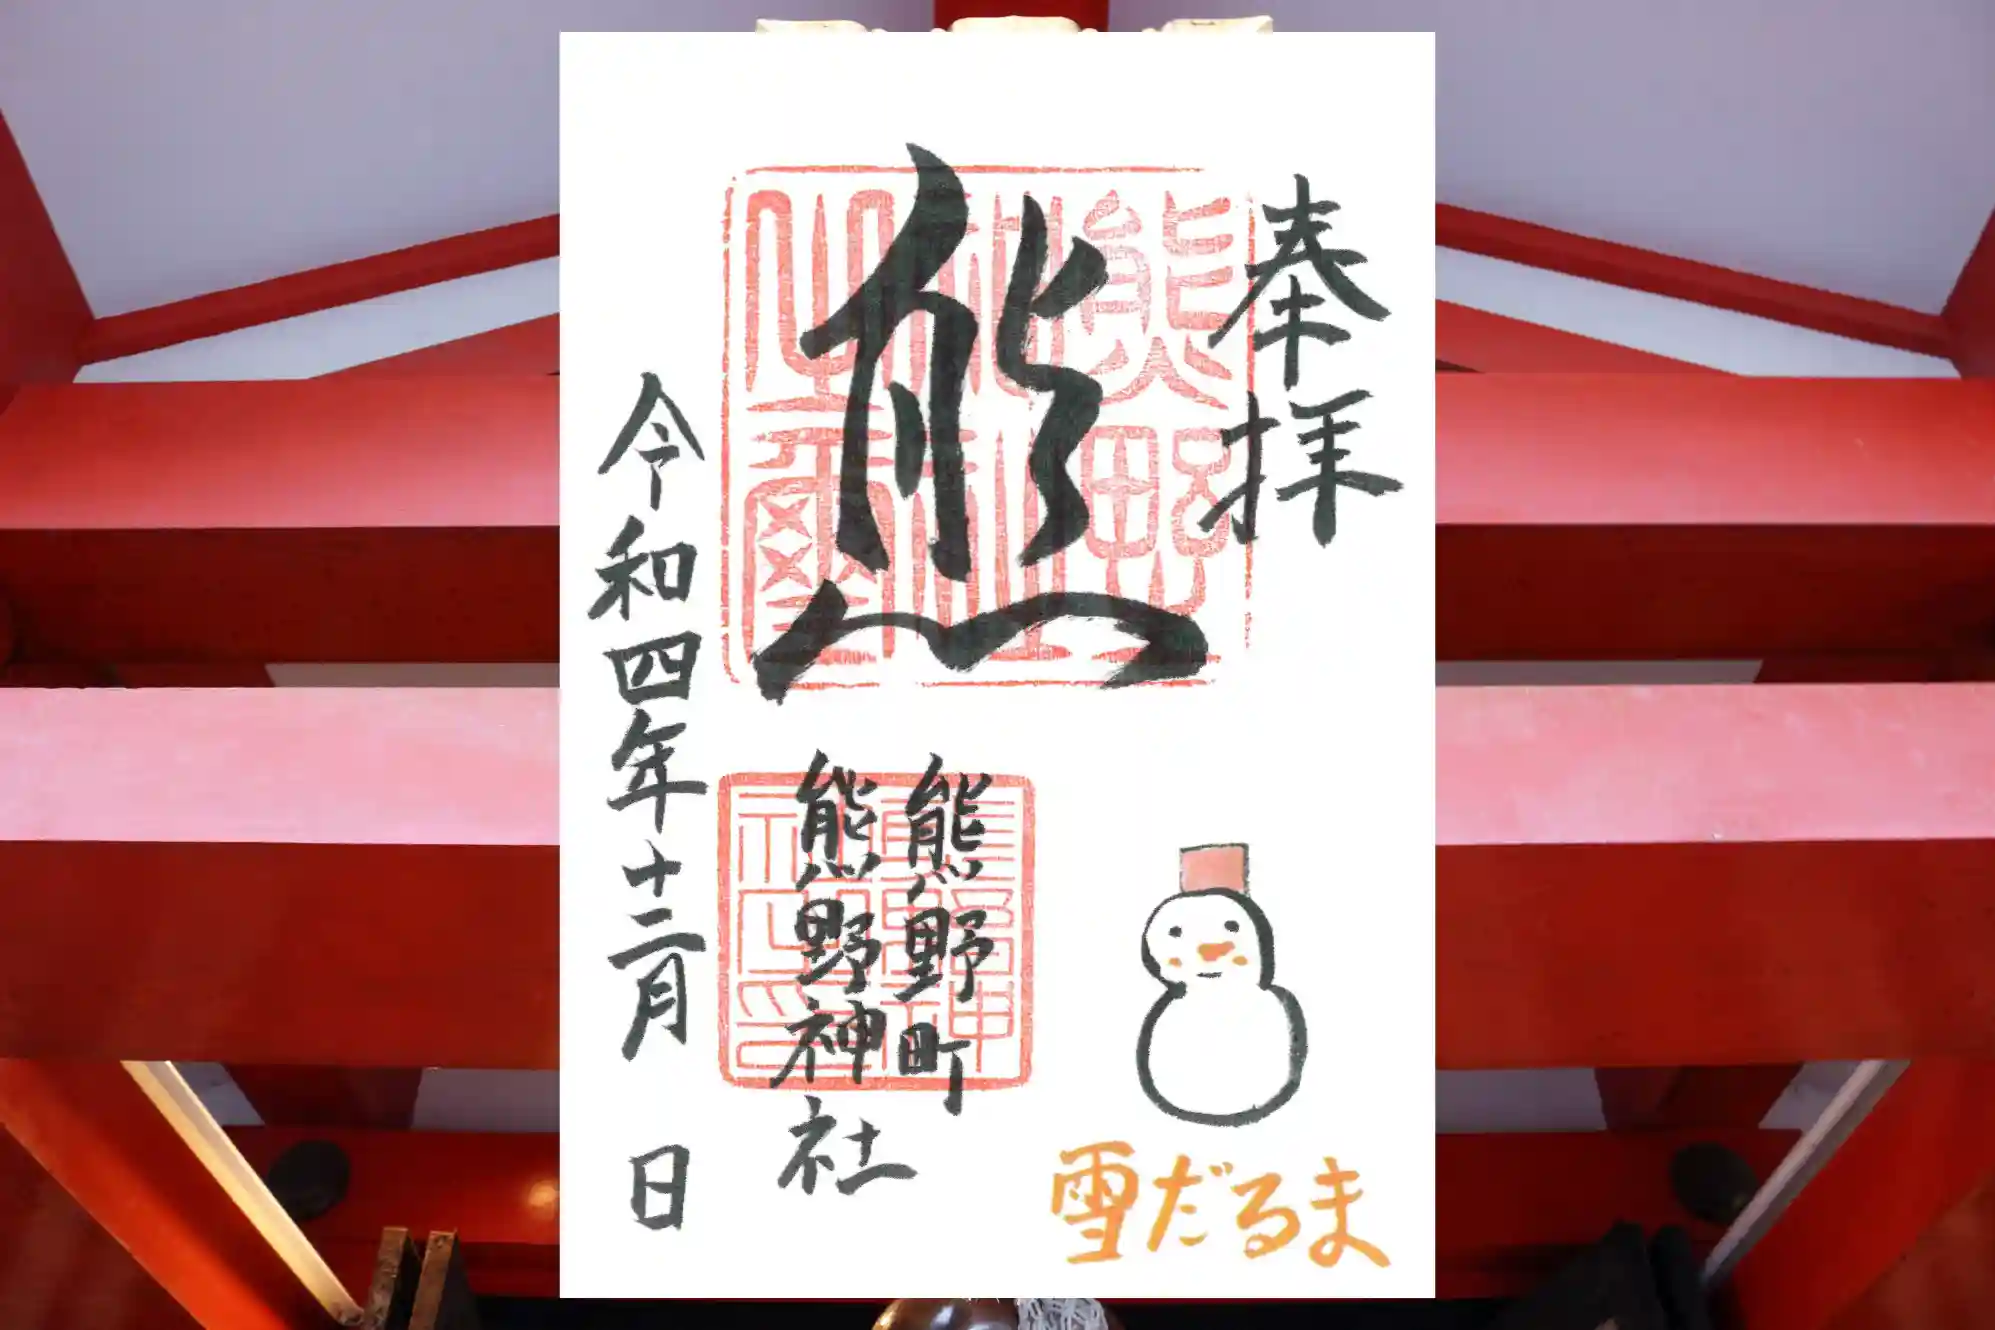 奉拝
熊
熊野町
熊野神社
令和四年十二月 日
雪だるま